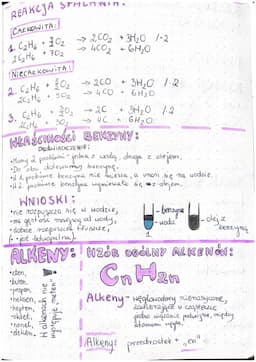 REAKCJA SPALANIA:
CAŁKOWITA:
1. C₂H₆ + 7/2 O₂ → 2CO₂ + 3H₂O /·2
2C₂H₆ + 7O₂ → 4CO₂ + 6H₂O
NIECAŁKOWITA:
2. C₂H₆ + 5/2 O₂ → 2CO + 3H₂O /·2
2C₂H₆ + 5O₂ → 4CO + 6H₂O
3. C₂H₆ + 3/2 O₂ → 2C + 3H₂O /·2
2C₂H₆ + 3O₂ → 4C + 6H₂O
WŁAŚCIWOŚCI BENZYNY:
DOŚWIADCZENIE:
•Mamy 2 probówki - jedna z wodą, druga z olejem.
•Do obu dodajemy benzynę.
•W 1. probówce benzyna nie miesza, a unosi się na wodzie.
•W 2. probówce benzyna wymieszała się z olejem.
WNIOSKI:
•nie rozpuszcza się w wodzie,
•ma gęstość mniejszą od wody,
•dobrze rozpuszcza tłuszcze,
•jest
- benzyna
- woda
- olej z benzyną
1 2
ALKENY:
•eten,
•buten,
•propen,
•heksen,
•hepten,
•okten,
•nonen,
•deken.
W alkenach nie występuje "meten"
WZÓR OGÓLNY ALKENÓW:
CnH2n
Alkeny - węglowodory nienasycone,
zawierające w cząsteczce
jedno wiązanie podwójne, między
atomami węgla.
Alkeny: przedrostek + „en"